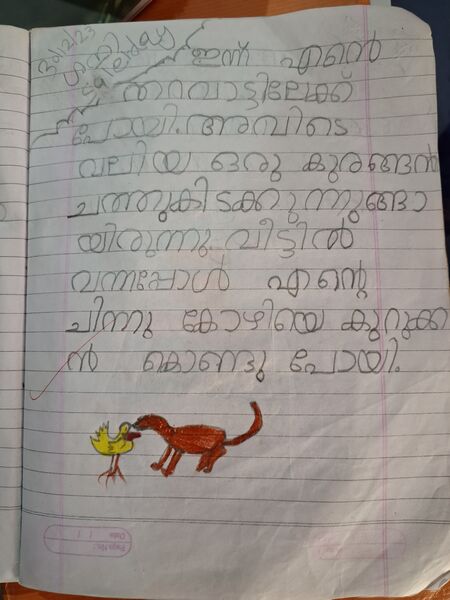 30/2/23
ശനി
ഇന്ന് എന്റെ
തറവാട്ടിലേക്ക്
പോയി. അവിടെ
വലിയ ഒരു കുരങ്ങൻ
ചത്തുകിടക്കുന്നുങ്ങാ
യിരുന്നു. വീട്ടിൽ
വന്നപ്പോൾ എന്റെ
ചിന്നു കോഴിയെ കുറുക്ക
ൻ കൊണ്ടു പോയി.
Page No.:
Date: / /